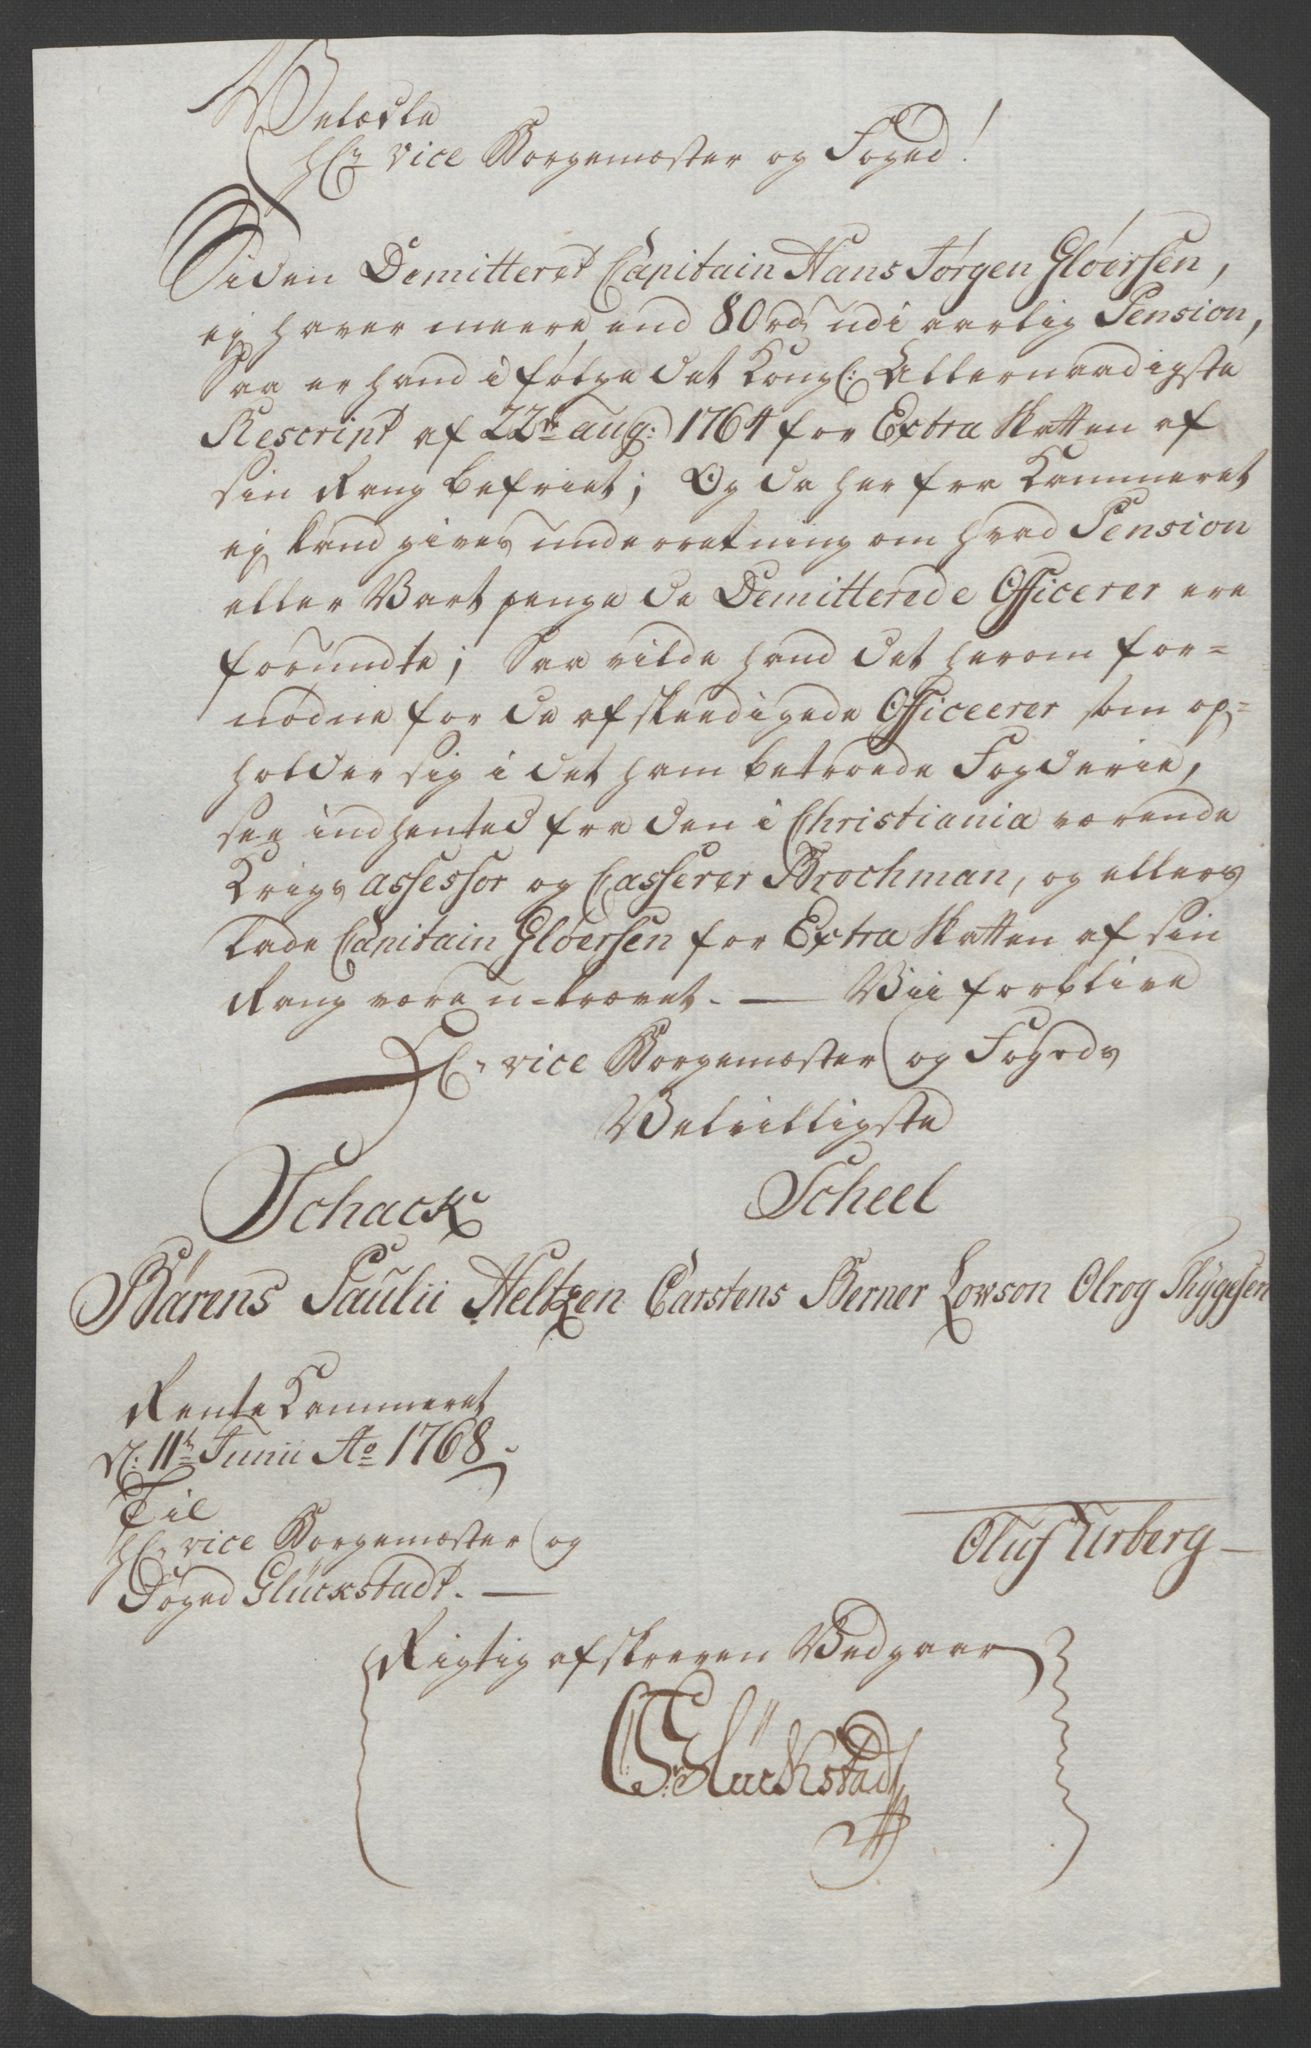 Velædle
Hr. vice Borgemester og Foged!
Siden Demitteret Capitain Hans Jørgen Gløersen,
ej haver meere end 80 rd. udi aarlig Pension,
Saa er hand i følge det Kongl: Allernaadigste
Rescript af 22de aug: 1764 for Extra Skatten af
sin Rang befriet; Og da her fra Kammeret
ej kand gives underretning om hvad Pension
eller Vart penge de Demitterede Officerer ere
forundte; Saa vilde hand det herom for=
nødne for de afskeedigede Officeerer som op=
holder sig i det ham betroede Fogderie,
see indhented fra den i Christiania værende
Krigs assessor og Casserer Brochman, og ellers
lade Capitain Gløersen for Extra Skatten af sin
Rang være u-krævet. — Vii forblive
Hr. vice Borgemester og Fogeds
Velvilligste
Schack Scheel
Bärens Paulii Heltzen Carstens Berner Lowson Olrog Thygesen
Rente Kammeret
d: 11te Junii Ao 1768.
Til
Hr. vice Borgemester og
Foged Glückstadt. —
Oluf Urberg —
Rigtig afskreven Vedgaar
Glückstad